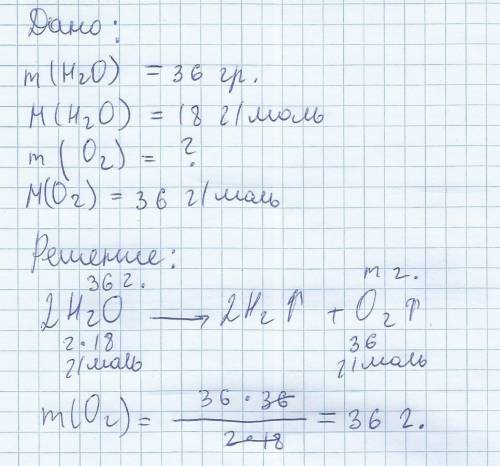 Дано:
m(H₂O) = 36 гр.
M(H₂O) = 18 г/моль
m(O₂) = ?
M(O₂) = 36 г/моль
Решение:
36 г. m г.
2H₂O → 2H₂↑ + O₂↑
2·18 36
г/моль г/моль
m(O₂) = 36·36 / 2·18 = 36 г.